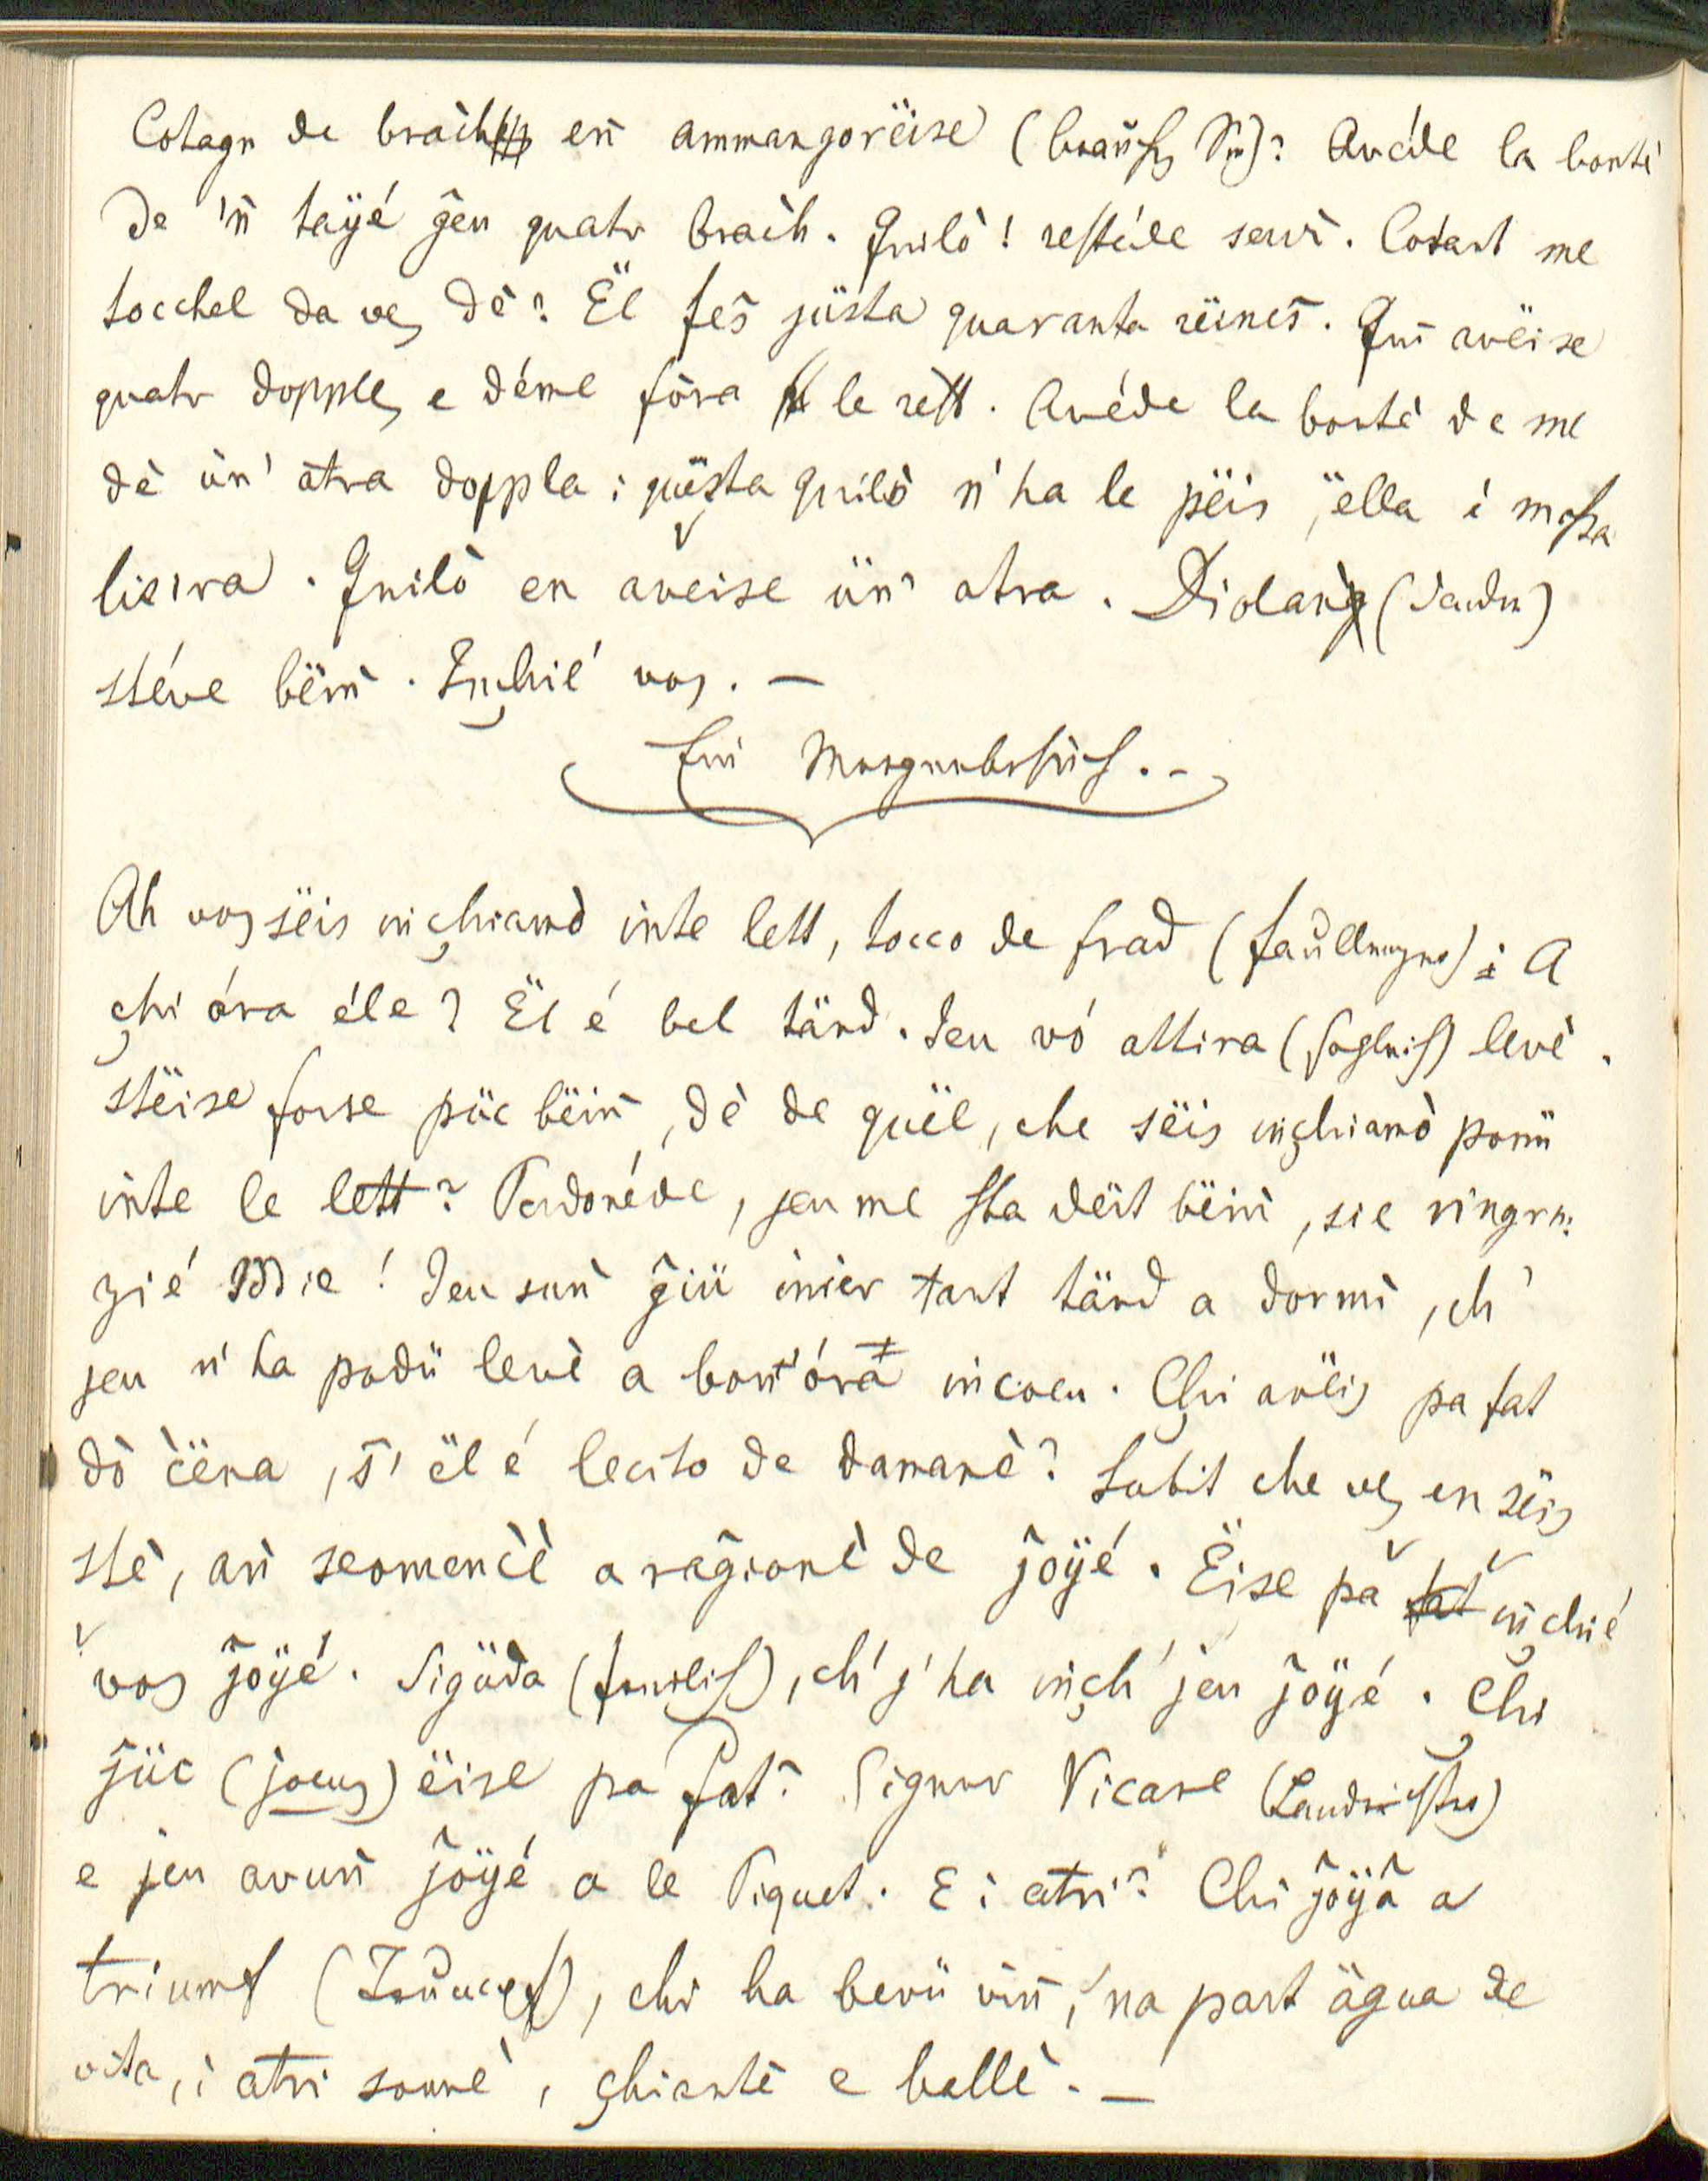 Cotagn de braćh en ammangorëise (brauchen Sie)? Avéde la bontè
de 'ń tayé jeu quatr braćh. Quilò! restéde servì. Cotant me
tocchel da ve dè? Ël fes jüsta quaranta räines. Quì avëise
quatr dopple, e déme föra le rest. Avéde la bontè de me
dè ün' atra doppla; quësta quilò n' ha le pëis, ëlla é massa
liesira. Quilò en aveise ün' atra. Diolan (danke)
stéve bëin. Inchié vos. —
Ein Morgenbesuch. -
Ah vos sëis inchiamò inte lett, tocco de frad (faullenzer)! A
chi óra éle? Ël é bel tärd. Jeu vó attira (sogleich) levè.
Stëise forse püc bëin, dè de quël, che sëis inchiamò ponü
inte le lett? Perdonéde, jeu me sta dërt bëin, sie ringra:
zié Die! Jeu sun giü inier tant tärd a dormì, ch'
jeu n' ha podü levè a bon' óra incoeu. Chi avëis pa fat
dò cëna, s' ël é lecito de damanè? Subit che ve en sëis
stè, an scomencè a ragionè de joyé. Ëise pa inchié
vos joyé. Sigüda (freilich), ch' j' ha inch' jeu joyé. Chi
jüc (jocus) ëise pa fat? Signur Vicare (Landrichter)
e jeu avun joyé a le Piquet. E i atri? Chi joyà a
triumf, chi ha bevü vin, 'na part ägua de
vita, i atri sonnè, chiantè e ballè. —